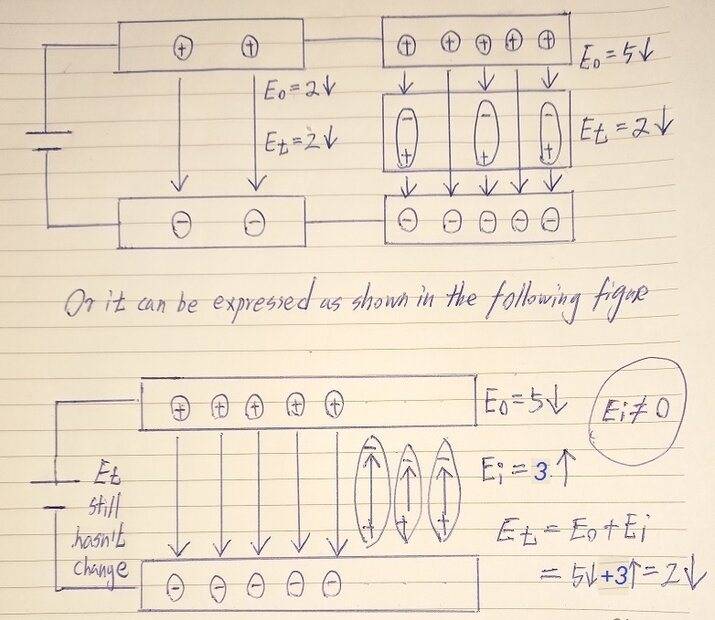 E₀ = 2↓
E₀ = 5↓
Et = 2↓
Et = 2↓
Or it can be expressed as shown in the following figure
E₀ = 5↓
Ei ≠ 0
Et
still
hasn't
change
Ei = 3↑
Et = E₀ + Ei
= 5↓ + 3↑ = 2↓